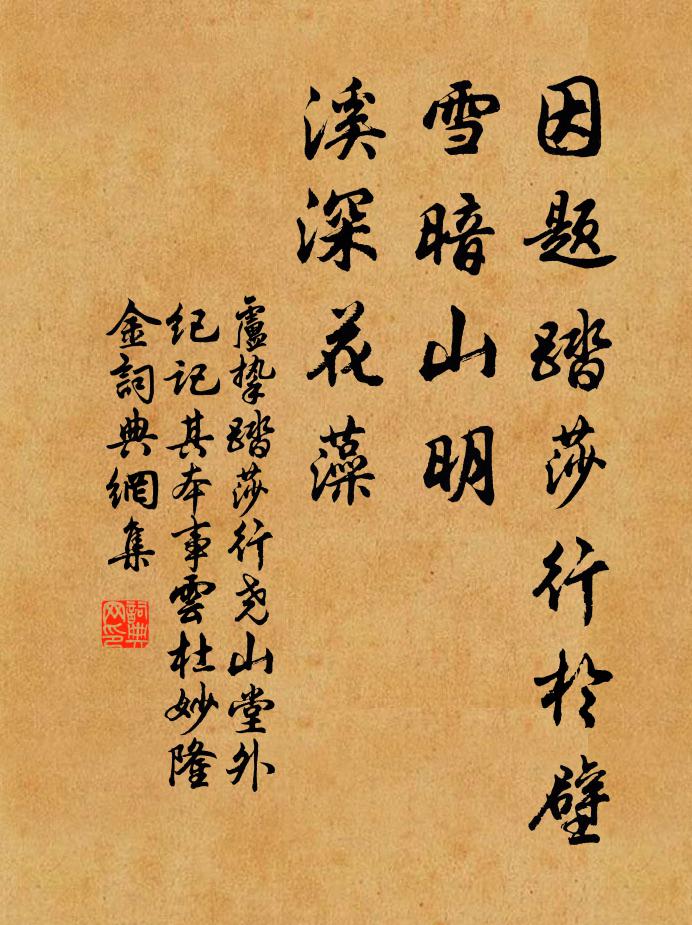 因题踏莎行於壁
雪暗山明
溪深花藻
盧挚踏莎行尧山堂外
纪记其本事雲杜妙隆
金詞典網集
詞典
网印